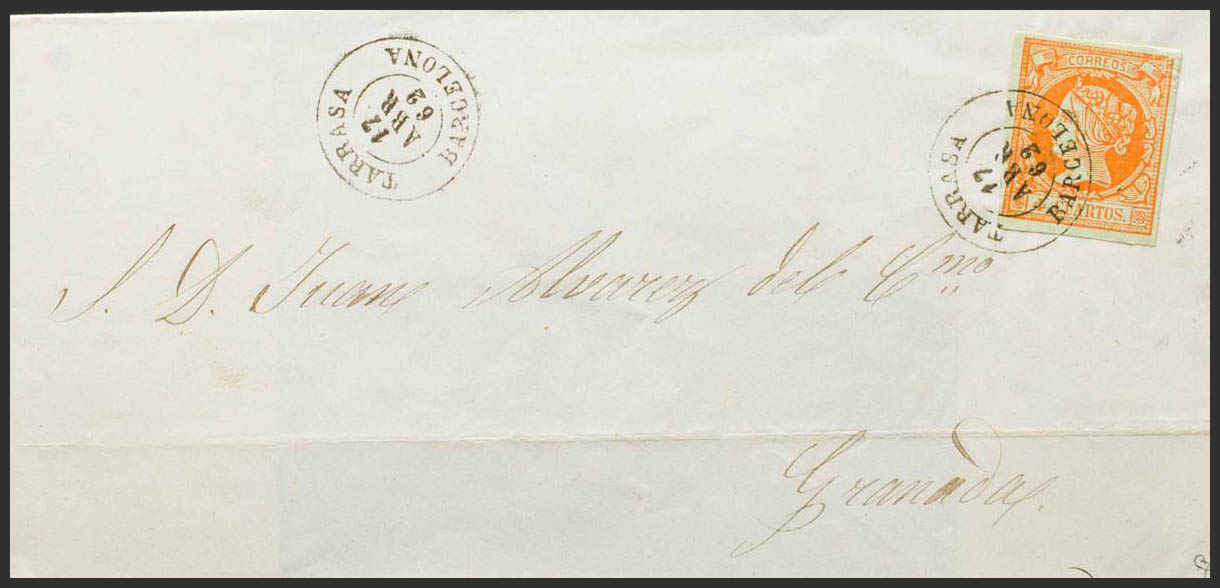 TARRASA
BARCELONA
17
ABR
62
CORREOS
TARRASA
BARCELONA
17
ABR
62
RTOS.
S. D. Juan Alvarez del Cmo
Granada.